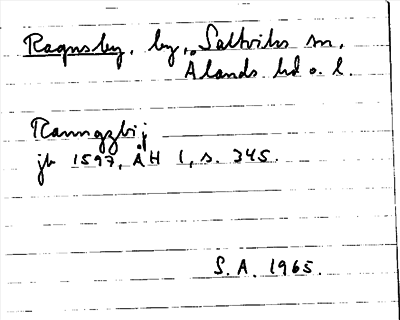 Ragnsby, by, Saltviks sn,
Ålands hd o. l.
Ranngzbij
jb 1597, ÅH 1, s. 345.
S.A. 1965.